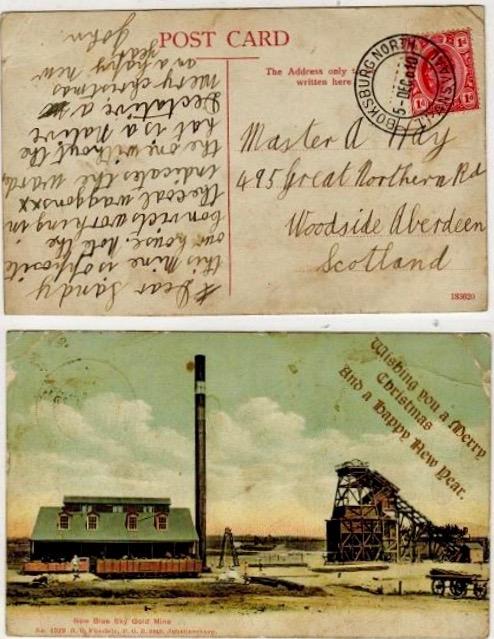 POST CARD
The Address only
written here
BOKSBURG NORTH
TRANSVAAL
5-DEC
1d 1d
Master A Hay
495 Great Northern Rd
Woodside Aberdeen
Scotland
183620
Dear Sandy
this mine is opposite
our house, note the
convicts working in
the coal waggons xx
indicates the ward,
the one without the
hat is a native
Merry christmas
an a happy new
year
John
Wishing you a Merry
Christmas
And a Happy New Year.
New Blue Sky Gold Mine
Johannesburg.